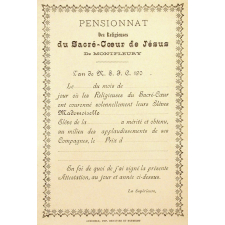 PENSIONNAT
Des Religieuses
du Sacré-Cœur de Jésus
De MONTFLEURY
L'an de N. S. J. C. 190
Le du mois de
jour où les Religieuses du Sacré-Cœur
ont couronné solennellement leurs Elèves
Mademoiselle
Elève de la a mérité et obtenu,
au milieu des applaudissements de ses
Compagnes, le Prix d
En foi de quoi j'ai signé la présente
Attestation, au jour et année ci-dessus.
La Supérieure,